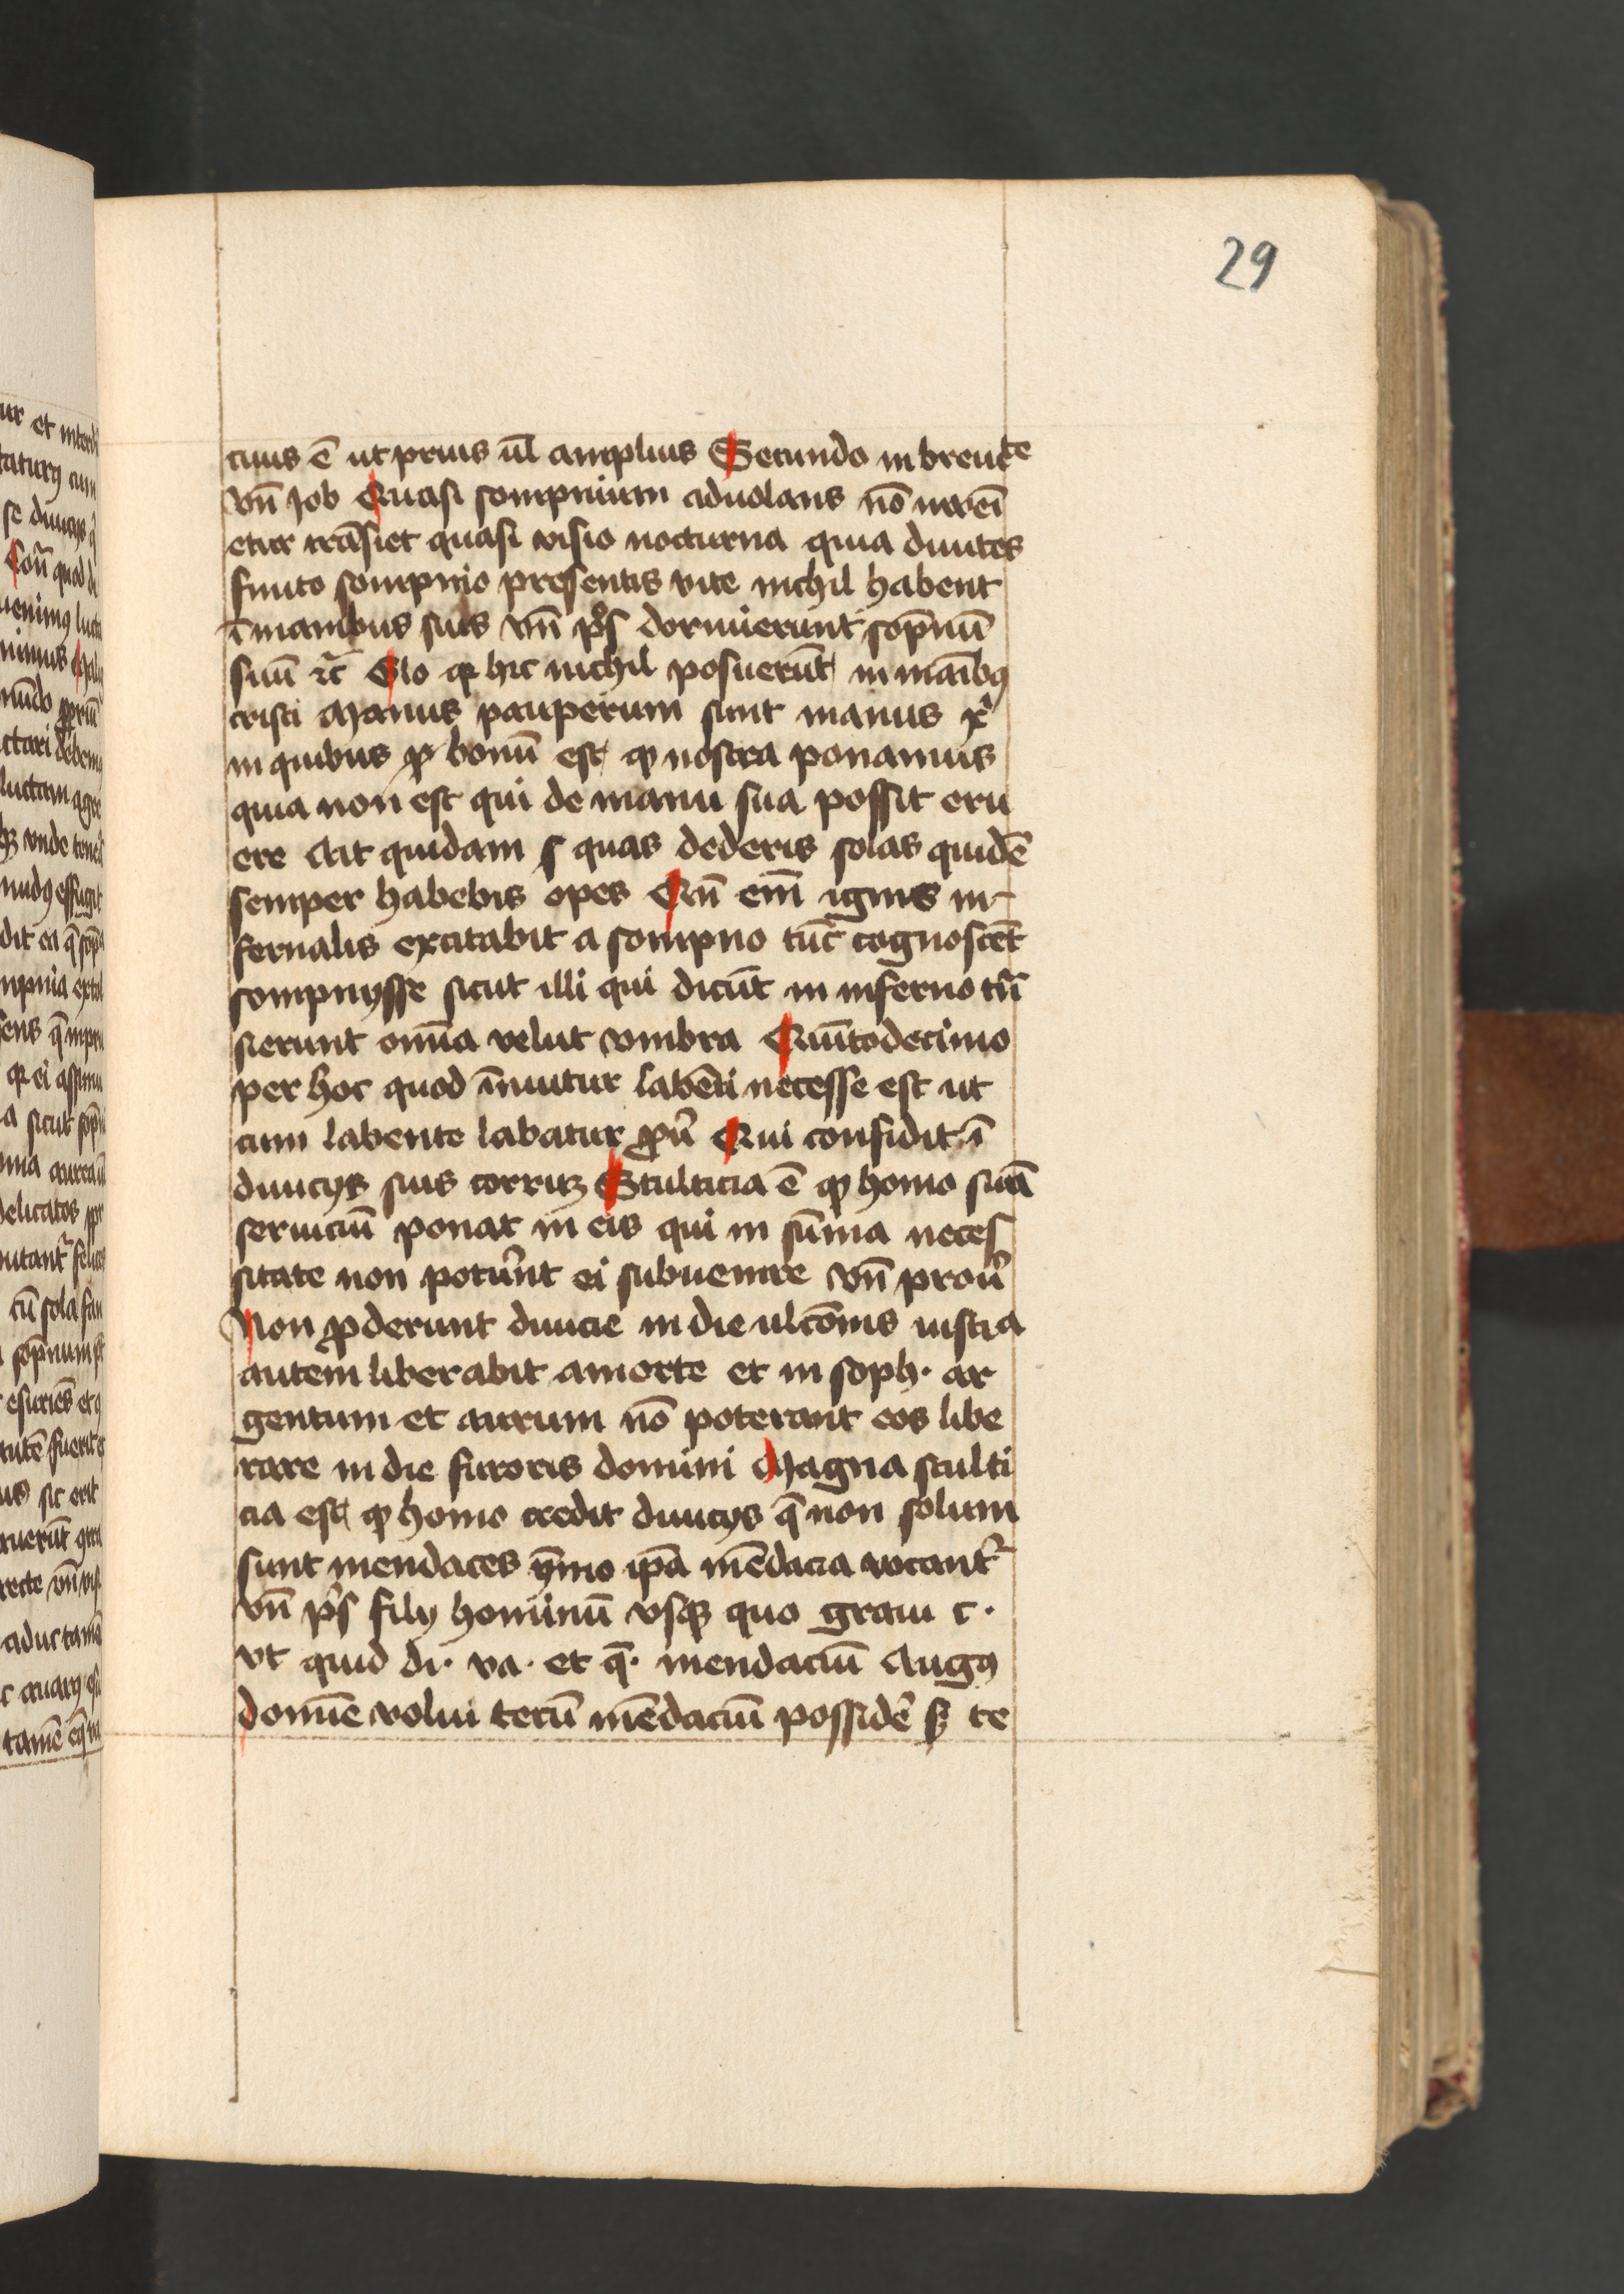 29
cius ē ut prius ul̄ amplius Secundo in breuite
vn̄ Job Quasi sompnium aduolans nō inuenī
etur trāsiet quasi visio nocturna quia diuites
finito sompnio presentis vite nichil habent
ī manibus suis vn̄ p̄s dormierunt sopnū
suū ⁊c̄ Glo qꝛ hic nichil posuerūt in manibꝰ
cristi Manus pauperum sunt manus xp̄i
in quibus ꝙ bonū est ꝙ nostra ponamus
quia non est qui de manu sua possit eru
ere Ait quidam s quas dederis solas quidē
semper habebis opes Cū em̄ ignis in-
fernalis excitabit a sompno tūc cognoscēt
sompnysse sicut illi qui dicūt in inferno trā
sierunt omīa velut vmbra Quītodecimo
per hoc quod īnititur labēti necesse est ut
cum labente labatur ꝓū Qui confidit ī
diuicijs suis corruꝫ Stulticia ē ꝙ homo suā
seruiciū ponat in eis qui in sūma neces
sitate non poterūt ei subuenire vn̄ prou̓
Non ꝓderunt diuicie in die ulcōnis iusticia
autem liberabit a morte et in soph. ar
gentum et aurum nō poterant eos libe
rare in die furoris domini Magna stulti
cia est ꝙ homo credit diuicijs q̄ non solum
sunt mendaces ȳmo ipā mēdacia vocant᷑
vn̄ p̄s filij hominū vsqꝫ quo graui c.
vt quid di. va. et q̄. mendaciū Augꝰ
domīe volui tecū mēdaciū possidē sꝫ te